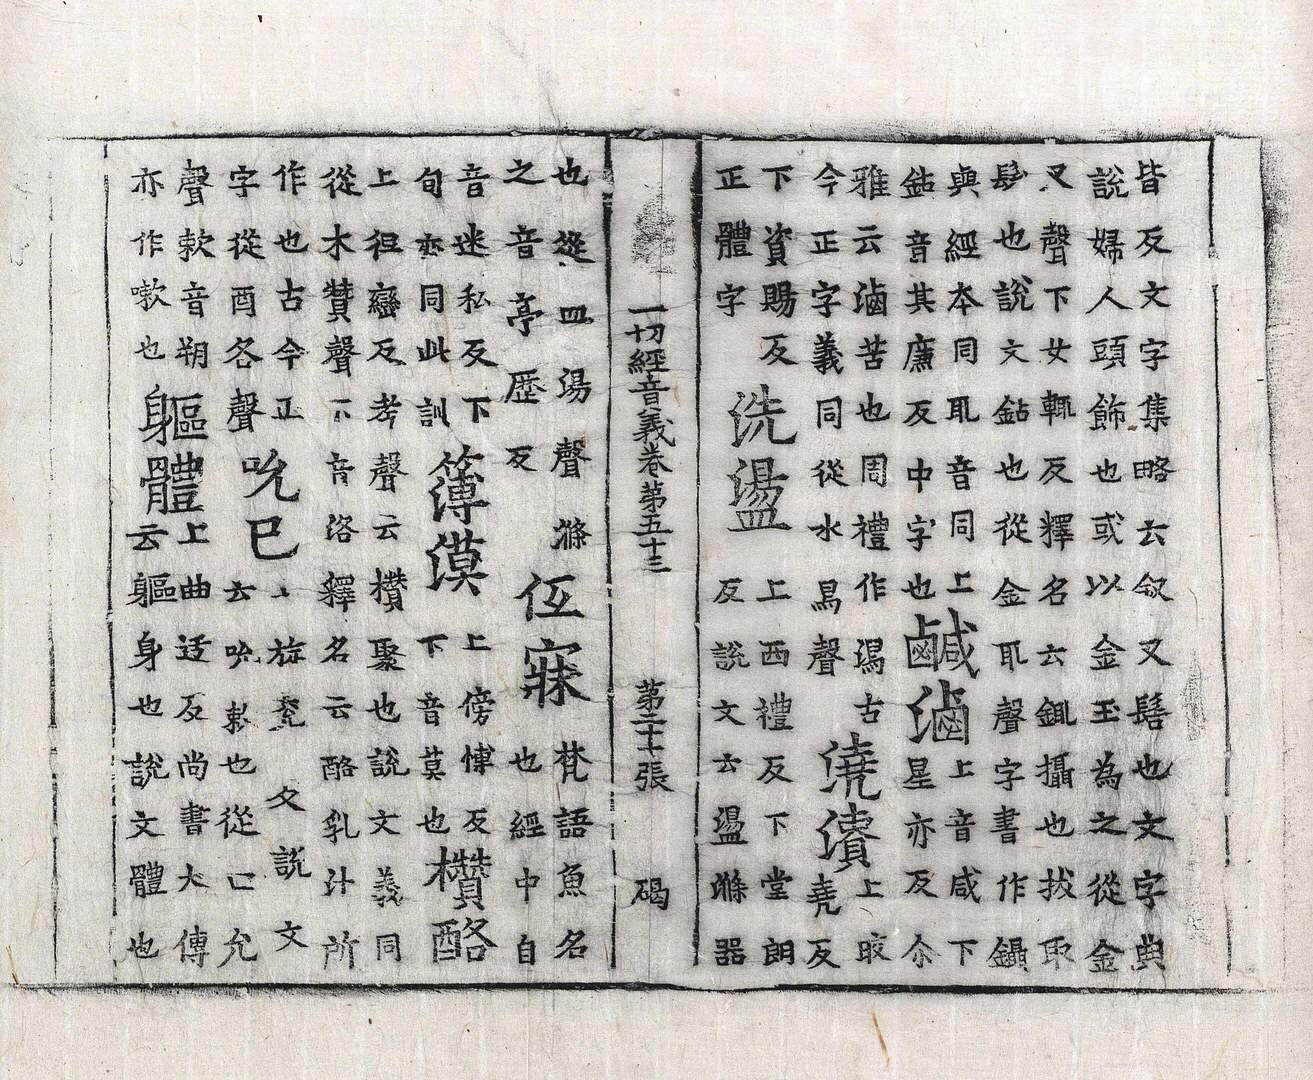 皆反文字集略云釵又髻也文字典
說婦人頭飾也或以金玉為之從金
叉聲下女輒反釋名云鑷攝也拔取
髮也說文鉆也從金耴聲字書作鑷
與經本同耴音同上
鉆音其廉反中字也
鹹滷
上音咸下
星亦反尒
雅云滷苦也周禮作潟古
今正字義同從水舄聲
澆瀆
上晈
堯反
下資賜反
正體字
洗盪
上西禮反下堂朗
反說文云盪滌器
一切經音義卷第五十三 第二十張 碣
也從皿湯聲滌
之音亭歷反
伍寐
梵語魚名
也經中自
音迷私反下
旬亦同此訓
簿漠
上傍愽反
下音莫也
上徂巒反考聲云欑聚也說文義同
從木贊聲下音洛釋名云酪乳汁所
欑酪
作也古今正
字從酉各聲
吮已
上旋兖反說文
云吮欶也從口允
聲欶音朔
亦作嗽也
軀體
上曲迃反尚書大傳
云軀身也說文體也